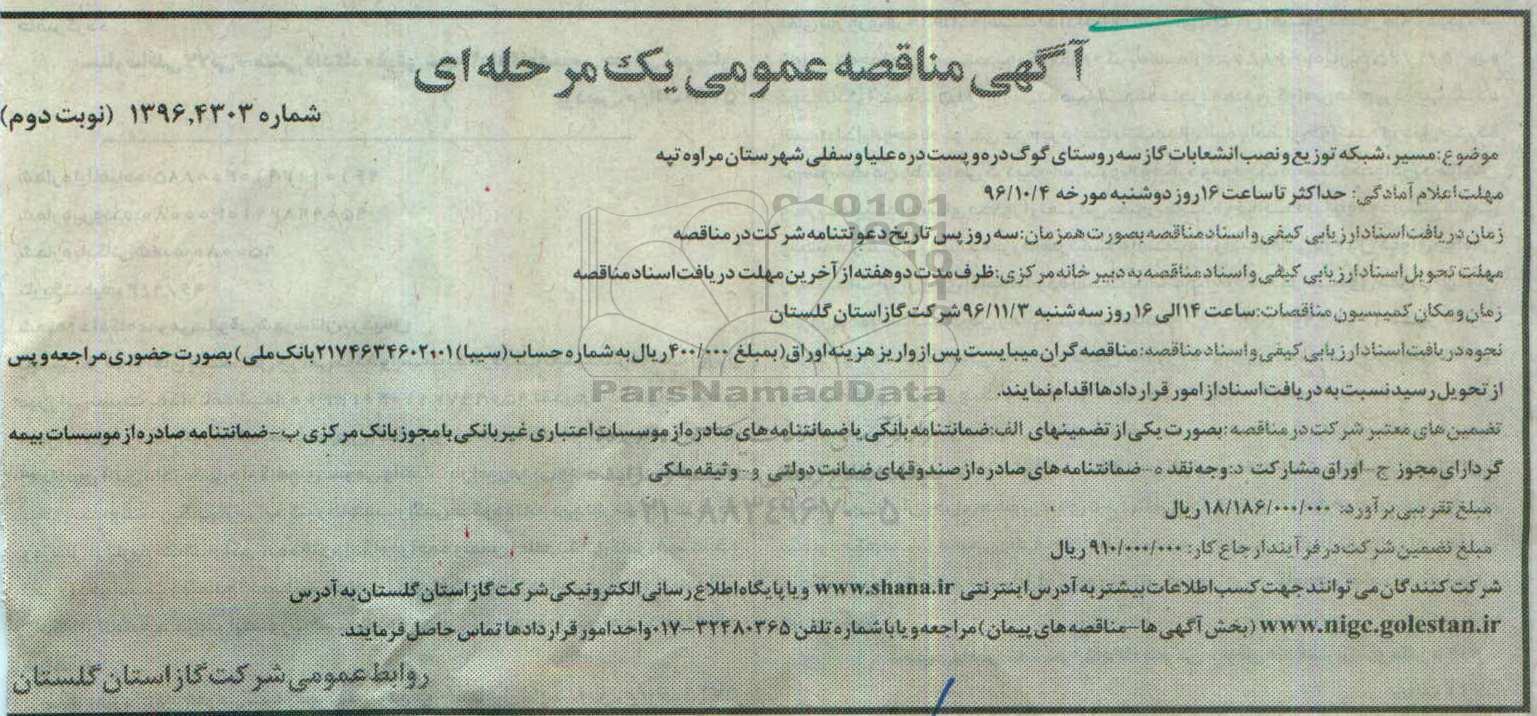 آگهی مناقصه عمومی یک مرحله ای
شماره ۱۳۹۶,۴۳۰۳ (نوبت دوم)
موضوع: مسیر، شبکه توزیع و نصب انشعابات گاز سه روستای گوگ دره و پست دره علیا و سفلی شهرستان مراوه تپه
مهلت اعلام آمادگی: حداکثر تا ساعت ۱۶ روز دوشنبه مورخه ۹۶/۱۰/۴
زمان دریافت اسناد ارزیابی کیفی و اسناد مناقصه بصورت همزمان: سه روز پس تاریخ دعوتتنامه شرکت در مناقصه
مهلت تحویل اسناد ارزیابی کیفی و اسناد مناقصه به دبیر خانه مرکزی: ظرف مدت دو هفته از آخرین مهلت دریافت اسناد مناقصه
زمان و مکان کمیسیون مناقصات: ساعت ۱۴ الی ۱۶ روز سه شنبه ۹۶/۱۱/۳ شرکت گاز استان گلستان
نحوه دریافت اسناد ارزیابی کیفی و اسناد مناقصه: مناقصه گران میبایست پس از واریز هزینه اوراق (بمبلغ ۴۰۰/۰۰۰ ریال به شماره حساب (سیبا) ۲۱۷۴۶۳۴۶۰۲۰۰۱ بانک ملی) بصورت حضوری مراجعه و پس
از تحویل رسید نسبت به دریافت اسناد از امور قراردادها اقدام نمایند.
تضمین های معتبر شرکت در مناقصه: بصورت یکی از تضمینهای الف: ضمانتنامه بانکی یا ضمانتنامه های صادره از موسسات اعتباری غیر بانکی با مجوز بانک مرکزی ب- ضمانتنامه صادره از موسسات بیمه
گر دارای مجوز ج- اوراق مشارکت د: وجه نقد ه- ضمانتنامه های صادره از صندوقهای ضمانت دولتی و- وثیقه ملکی
مبلغ تقریبی برآورد: ۱۸/۱۸۶/۰۰۰/۰۰۰ ریال
مبلغ تضمین شرکت در فرآیند ارجاع کار: ۹۱۰/۰۰۰/۰۰۰ ریال
شرکت کنندگان می توانند جهت کسب اطلاعات بیشتر به آدرس اینترنتی www.shana.ir و یا پایگاه اطلاع رسانی الکترونیکی شرکت گاز استان گلستان به آدرس
www.nigc.golestan.ir (بخش آگهی ها-مناقصه های پیمان) مراجعه و یا با شماره تلفن ۳۲۴۸۰۳۶۵-۰۱۷ واحد امور قراردادها تماس حاصل فرمایند.
روابط عمومی شرکت گاز استان گلستان
ParsNamadData